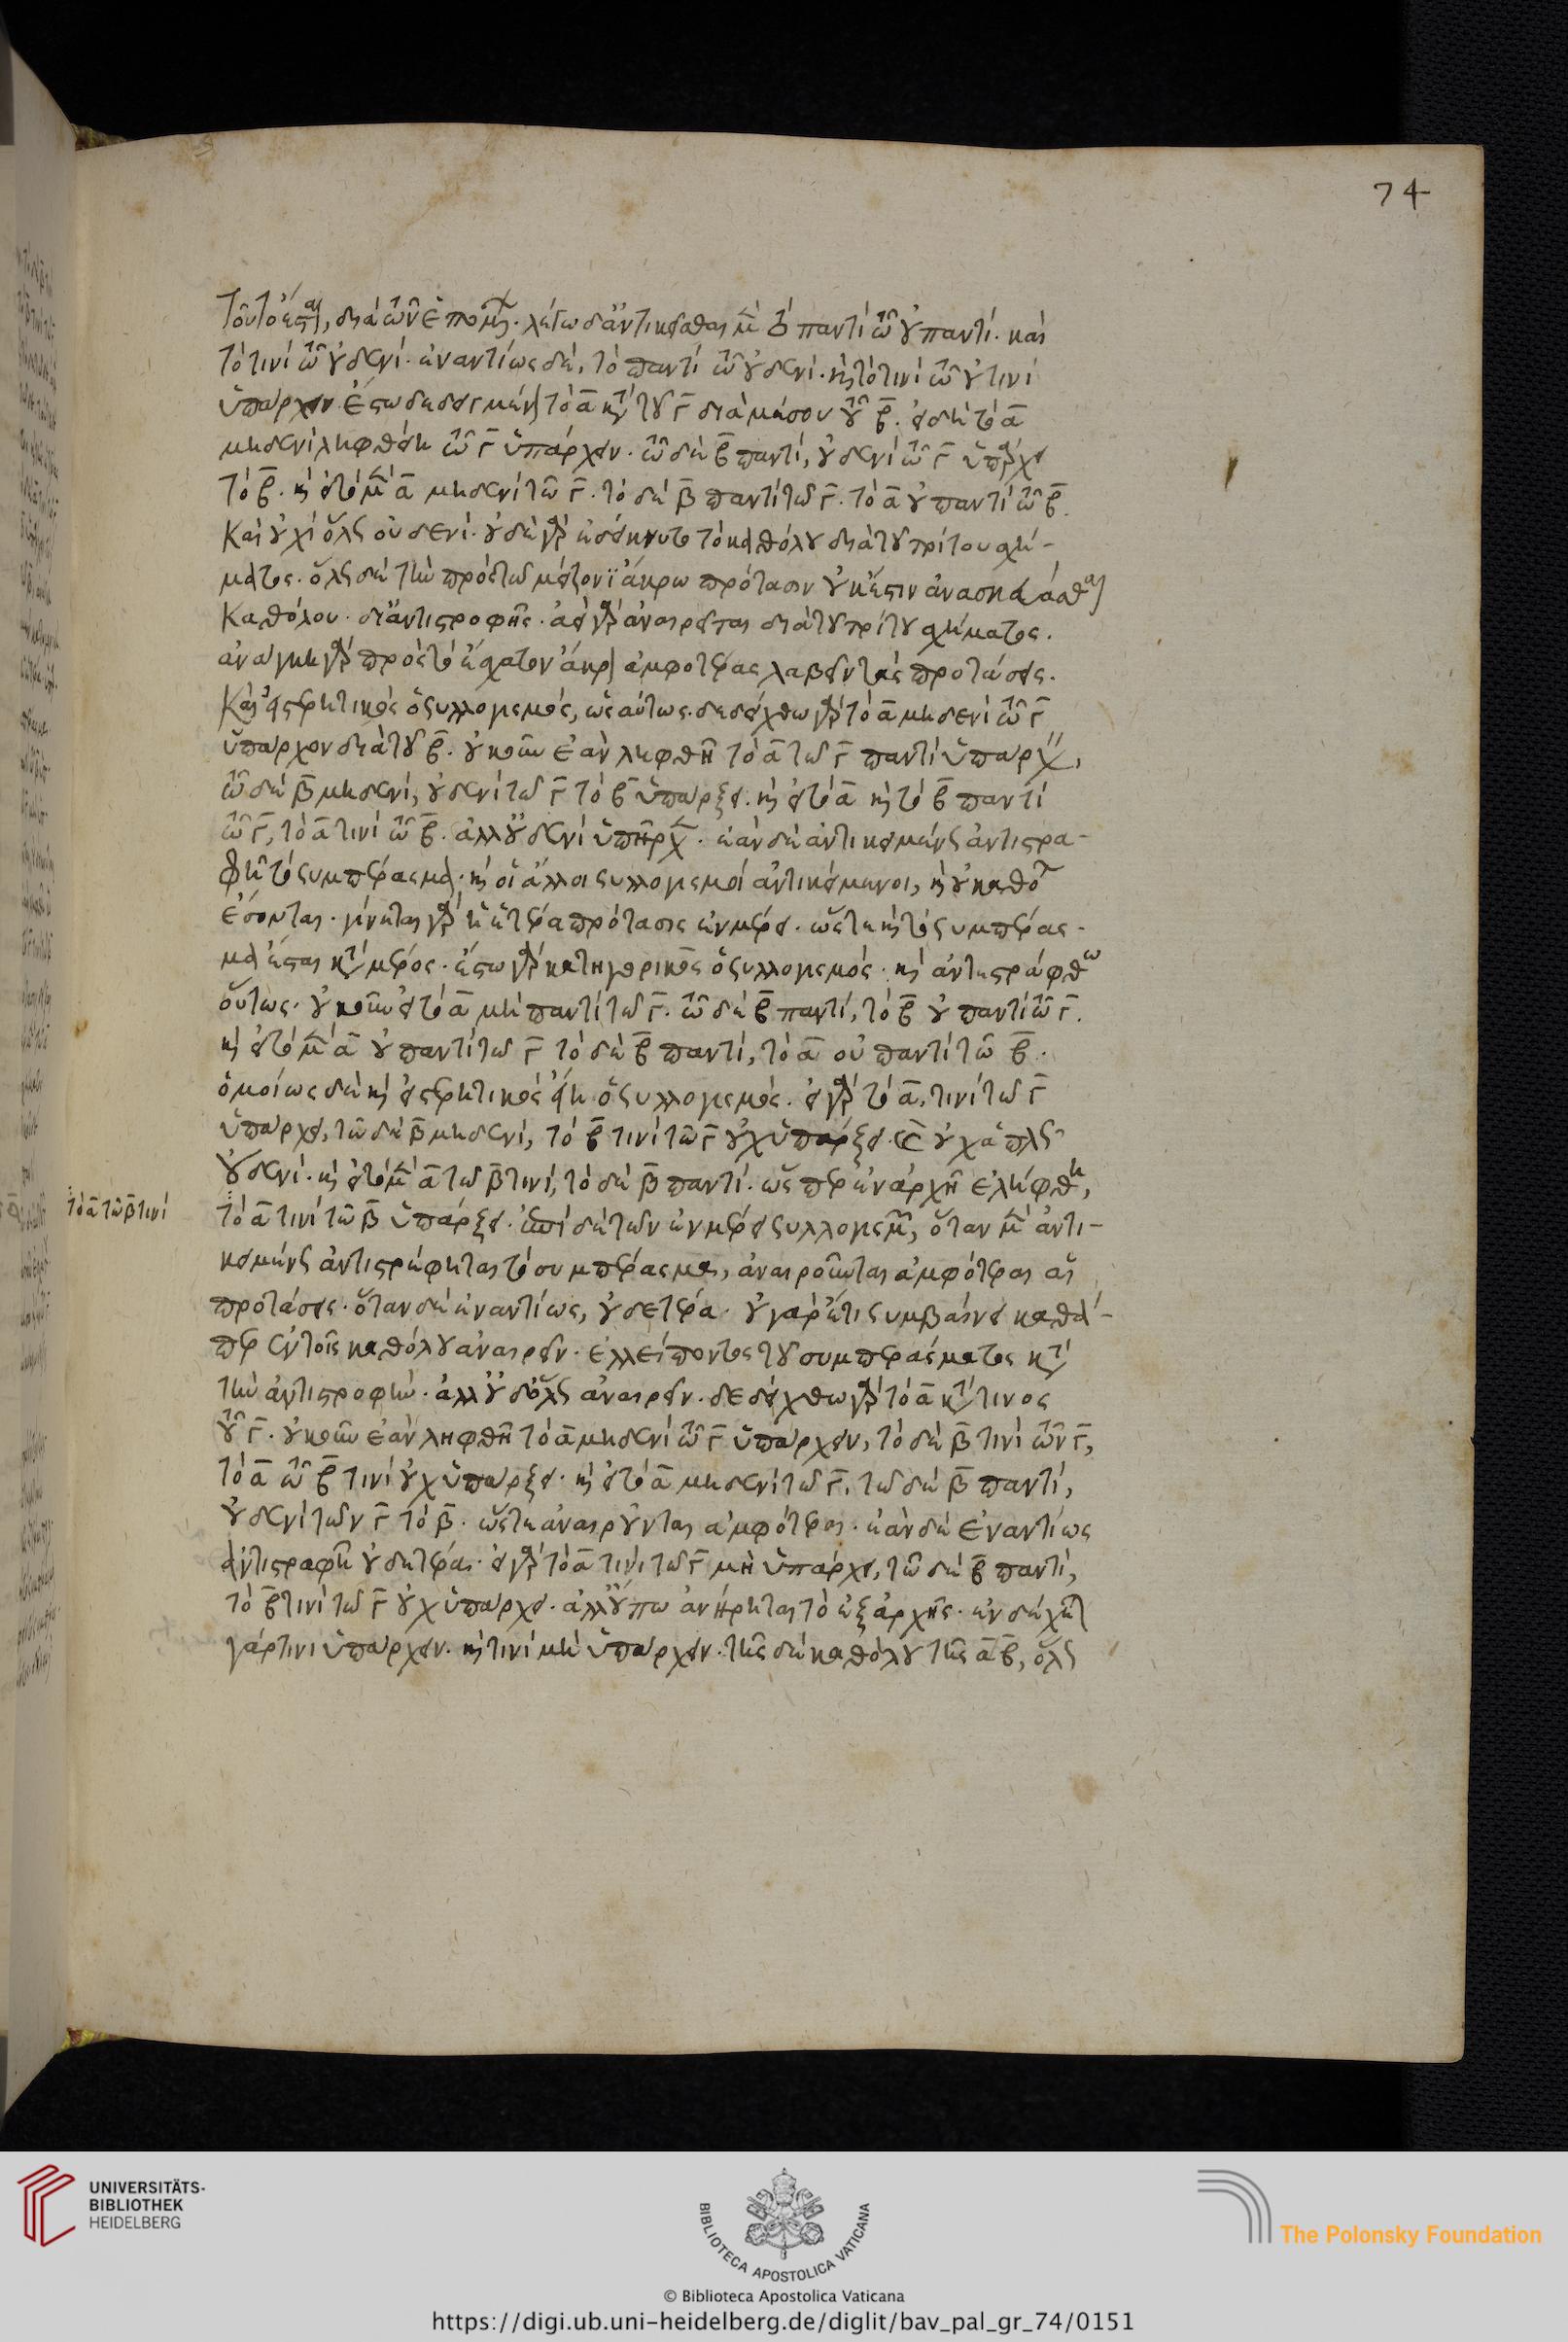 τοῦτο ἔσται, διὰ τῶν ἑπομένων. λέγω δ' ἀντικεῖσθαι μὲν τὸ παντὶ τῷ οὐ παντί. καὶ
τὸ τινὶ τῷ οὐδενί. ἐναντίως δὲ, τὸ παντὶ τῷ οὐδενί. καὶ τὸ τινὶ τῷ οὐ τινὶ
ὑπάρχειν. ἔστω δεδειγμένον τὸ α̅ κατὰ τοῦ γ̅ διὰ μέσου τοῦ β̅. εἰ δὴ τὸ α̅
μηδενὶ ληφθείη τῷ γ̅ ὑπάρχειν. τῷ δὲ β̅ παντί, οὐδενὶ τῷ γ̅ ὑπάρχει
τὸ β̅. καὶ εἰ τὸ μὲν α̅ μηδενὶ τῶ γ̅. τὸ δὲ β̅ παντὶ τῶ γ̅. τὸ α̅ οὐ παντὶ τῷ β̅.
καὶ οὐχὶ ὅλως οὐδενί. οὐδὲ γὰρ ἐδείκνυτο τὸ καθόλου διὰ τοῦ τρίτου σχή-
ματος. ὅλως δὲ τὴν πρὸς τῶ μείζονι ἄκρω πρότασιν οὐκ ἔστιν ἀνασκευάσαι
καθόλου. δι' ἀντιστροφῆς. ἀεὶ γὰρ ἀναιρεῖται διὰ τοῦ τρίτου σχήματος.
ἀνάγκη γὰρ πρὸς τὸ ἔσχατον ἄκρον ἀμφοτέρας λαβεῖν τὰς προτάσεις.
καὶ εἰ στερητικὸς ὁ συλλογισμός, ὡς αύτως. δεδείχθω γὰρ τὸ α̅ μηδενὶ τῷ γ̅
ὑπάρχον διὰ τοῦ β̅. οὐκοῦν ἐὰν ληφθῆ τὸ α̅ τῶ γ̅ παντὶ ὑπάρχειν,
τῷ δὲ β̅ μηδενί, οὐδενὶ τῶ γ̅ τὸ β̅ ὑπάρξει. καὶ εἰ τὸ α̅ καὶ τὸ β̅ παντὶ
τῷ γ̅, τὸ α̅ τινὶ τῷ β̅. ἀλλ' οὐδενὶ ὑπῆρχεν. ἐὰν δὲ ἀντικειμένως ἀντιστρα-
φῆ τὸ συμπέρασμα. καὶ οἱ ἄλλοι συλλογισμοὶ ἀντικείμενοι, καὶ οὐ καθόλου
ἔσονται. γίνεται γὰρ ἡ ἑτέρα πρότασις ἐν μέρει. ὥστε καὶ τὸ συμπέρασ-
μα ἔσται κατὰ μέρος. ἔστω γὰρ κατηγορικὸς ὁ συλλογισμός. καὶ ἀντεστράφθω
οὕτως. οὐκοῦν εἰ τὸ α̅ μὴ παντὶ τῶ γ̅. τῷ δὲ β̅ παντί, τὸ β̅ οὐ παντὶ τῷ γ̅.
καὶ εἰ τὸ μὲν α̅ οὐ παντὶ τῶ γ̅ τὸ δὲ β̅ παντί, τὸ α̅ οὐ παντὶ τῶ β̅.
ὁμοίως δὲ καὶ εἰ στερητικὸς εἴη ὁ συλλογισμός. εἰ γὰρ τὸ α̅, τινὶ τῶ γ̅
ὑπάρχει, τῶ δὲ β̅ μηδενί, τὸ β̅ τινὶ τῶ γ̅ οὐχ ὑπάρξει. καὶ οὐχ ἁπλῶς
οὐδενί. καὶ εἰ τὸ μὲν α̅ τῶ β̅ τινί, τὸ δὲ β̅ παντί. ὥσπερ ἐν ἀρχῆ ἐλήφθη,
τὸ α̅ τῶ β̅ τινί
τὸ α̅ τινὶ τῶ β̅ ὑπάρξει. ἐπὶ δὲ τῶν ἐν μέρει συλλογισμῶν, ὅταν μὲν ἀντι-
κειμένως ἀντιστρέφηται τὸ συμπέρασμα, ἀναιροῦνται ἀμφότεραι αἱ
προτάσεις. ὅταν δὲ ἐναντίως, οὐδετέρα. οὐ γὰρ ἔτι συμβαίνει καθά-
περ ἐν τοῖς καθόλου ἀναιρεῖν. ἐλλείποντος τοῦ συμπεράσματος κατὰ
τὴν ἀντιστροφήν. ἀλλ' οὐδ' ὅλως ἀναιρεῖν. δεδείχθω γὰρ τὸ α̅ κατὰ τινος
τοῦ γ̅. οὐκοῦν ἐὰν ληφθῆ τὸ α̅ μηδενὶ τῷ γ̅ ὑπάρχειν, τὸ δὲ β̅ τινὶ τῶν γ̅,
τὸ α̅ τῷ β̅ τινὶ οὐχ ὑπάρξει. καὶ εἰ τὸ α̅ μηδενὶ τῶ γ̅. τῶ δὲ β̅ παντί,
οὐδενὶ τῶν γ̅ τὸ β̅. ὥστε ἀναιροῦνται ἀμφότεραι. ἐὰν δὲ ἐναντίως
ἀντιστραφῆ οὐδετέρα. εἰ γὰρ τὸ α̅ τινὶ τῶ γ̅ μὴ ὑπάρχει, τῶ δὲ β̅ παντί,
τὸ β̅ τινὶ τῶ γ̅ οὐχ ὑπάρχει. ἀλλ' οὔπω ἀνήρηται τὸ ἐξ ἀρχῆς. ἐνδέχεται
γάρ τινι ὑπάρχειν. καὶ τινὶ μὴ ὑπάρχειν. τῆς δὲ καθόλου τῆς α̅ β̅, ὅλως
74
UNIVERSITÄTS-
BIBLIOTHEK
HEIDELBERG
BIBLIOTECA APOSTOLICA VATICANA
The Polonsky Foundation
© Biblioteca Apostolica Vaticana
https://digi.ub.uni-heidelberg.de/diglit/bav_pal_gr_74/0151